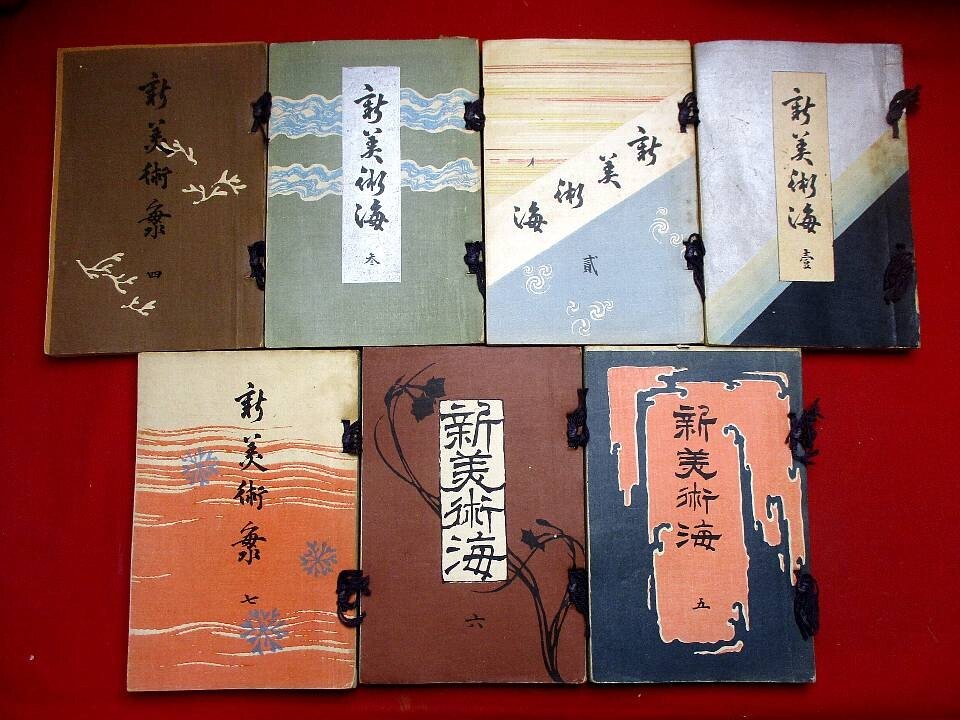 新美術海
壹
新美術海
貳
新美術海
叁
新美術海
四
新美術海
五
新美術海
六
新美術海
七